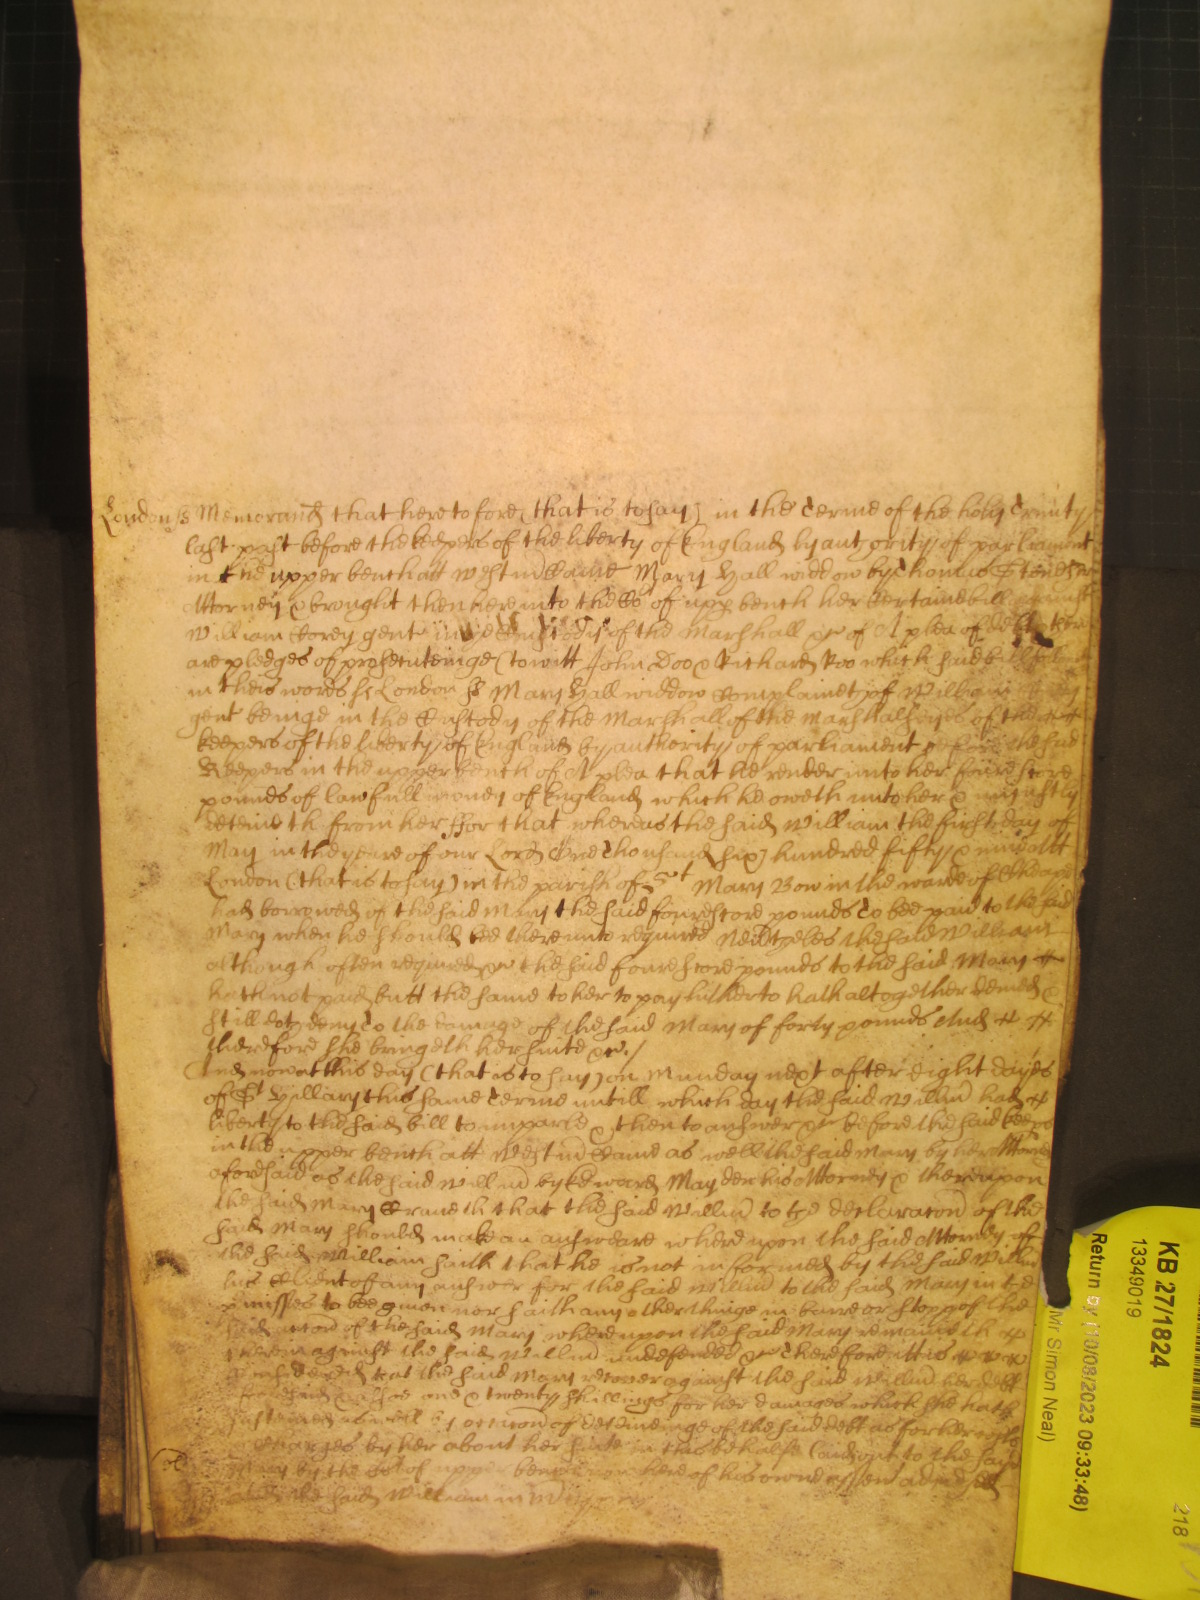 London ss Memorand that heretofore (that is to say) in the Terme of the holy Trinity
last past before the keepers of the liberty of England by authority of parliament
in the upper bench att Westm Came Mary Hall widdow by Thomas
Attorney & brought then here into the Co of upp bench her Certaine bill against
William Corey gent in the Custody of the Marshall &c of A plea of debt & there
are pledges of prosecuteinge (to witt John Doo & Richard Roo which said bill
in theis words ss London ss Mary Hall widdow Complaineth of William Corey
gent beinge in the Custody of the Marshall of the Marshalseyes of the
keepers of the liberty of England by authority of parliament before the said
Keepers in the upper bench of A plea that he render unto her foure score
pounds of lawfull money of England which he oweth unto her & uniustly
deteineth from her ffor that whereas the said William the first day of
May in the yeare of our Lord One Thousand six hundred fifty & nine att
London (that is to say) in the parish of St Mary Bow in the warde of Cheape
had borrowed of the said Mary the said foure score pounds To bee paid to the said
Mary when he should bee thereunto required Nevertheles the said William
although often required &c the said foure score pounds to the said Mary
hath not paid butt the same to her to pay hitherto hath altogether denied &
still doth deny To the damage of the said Mary of forty pounds And
therefore she bringeth her suite &c /
And now att this day (that is to say) on Munday next after eight dayes
of St Hillary this same Terme untill which day the said Willm had
liberty to the said bill to imparle & then to answer &c before the said keeps
in the upper bench att Westm Came as well the said Mary by her Attorney
aforesaid as the said Willm by Edward May der his Attorney & thereupon
the said Mary Craveth that the said Willm to the declaracon of the
said Mary should make an answeare whereupon the said Attorney of
the said William saith that he is not informed by the said Willm
his Client of any answer for the said Willm to the said Mary in the
pmisses to bee given nor saith any other thinge in barre or stopp of the
said accon of the said Mary whereupon the said Mary remaineth
therein against the said Willm undefended &c Therefore itt is
Considered that the said Mary recover against the said Willm her debt
aforesaid & alsoe one & twenty shillings for her damages which she hath
susteined as well by occacon of deteininge of the said debt as for her costs
& Charges by her about her suite in this behalfe laid out to the said
Mary by the Co of upper bench here of his owne assent adiudged
And the said William in Mercy &c
KB 27/1824
13349019
Return by (10/08/2023 09:33:48)
(Mr Simon Neal)
218